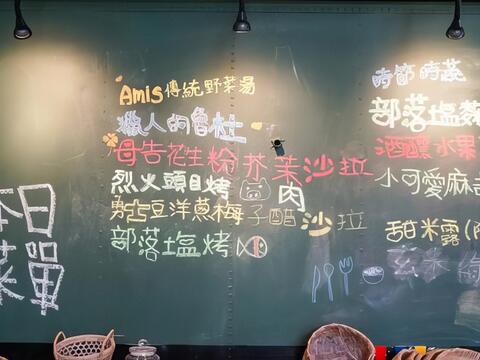 本日
菜單
Amis傳統野菜湯
獵人的魯肚
母告花生粉芥茉沙拉
烈火頭目烤肉
豆洋蔥梅子醋沙拉
部落塩烤
時節時蔬
部落塩麴
酒釀水果
小可愛麻
甜米露(